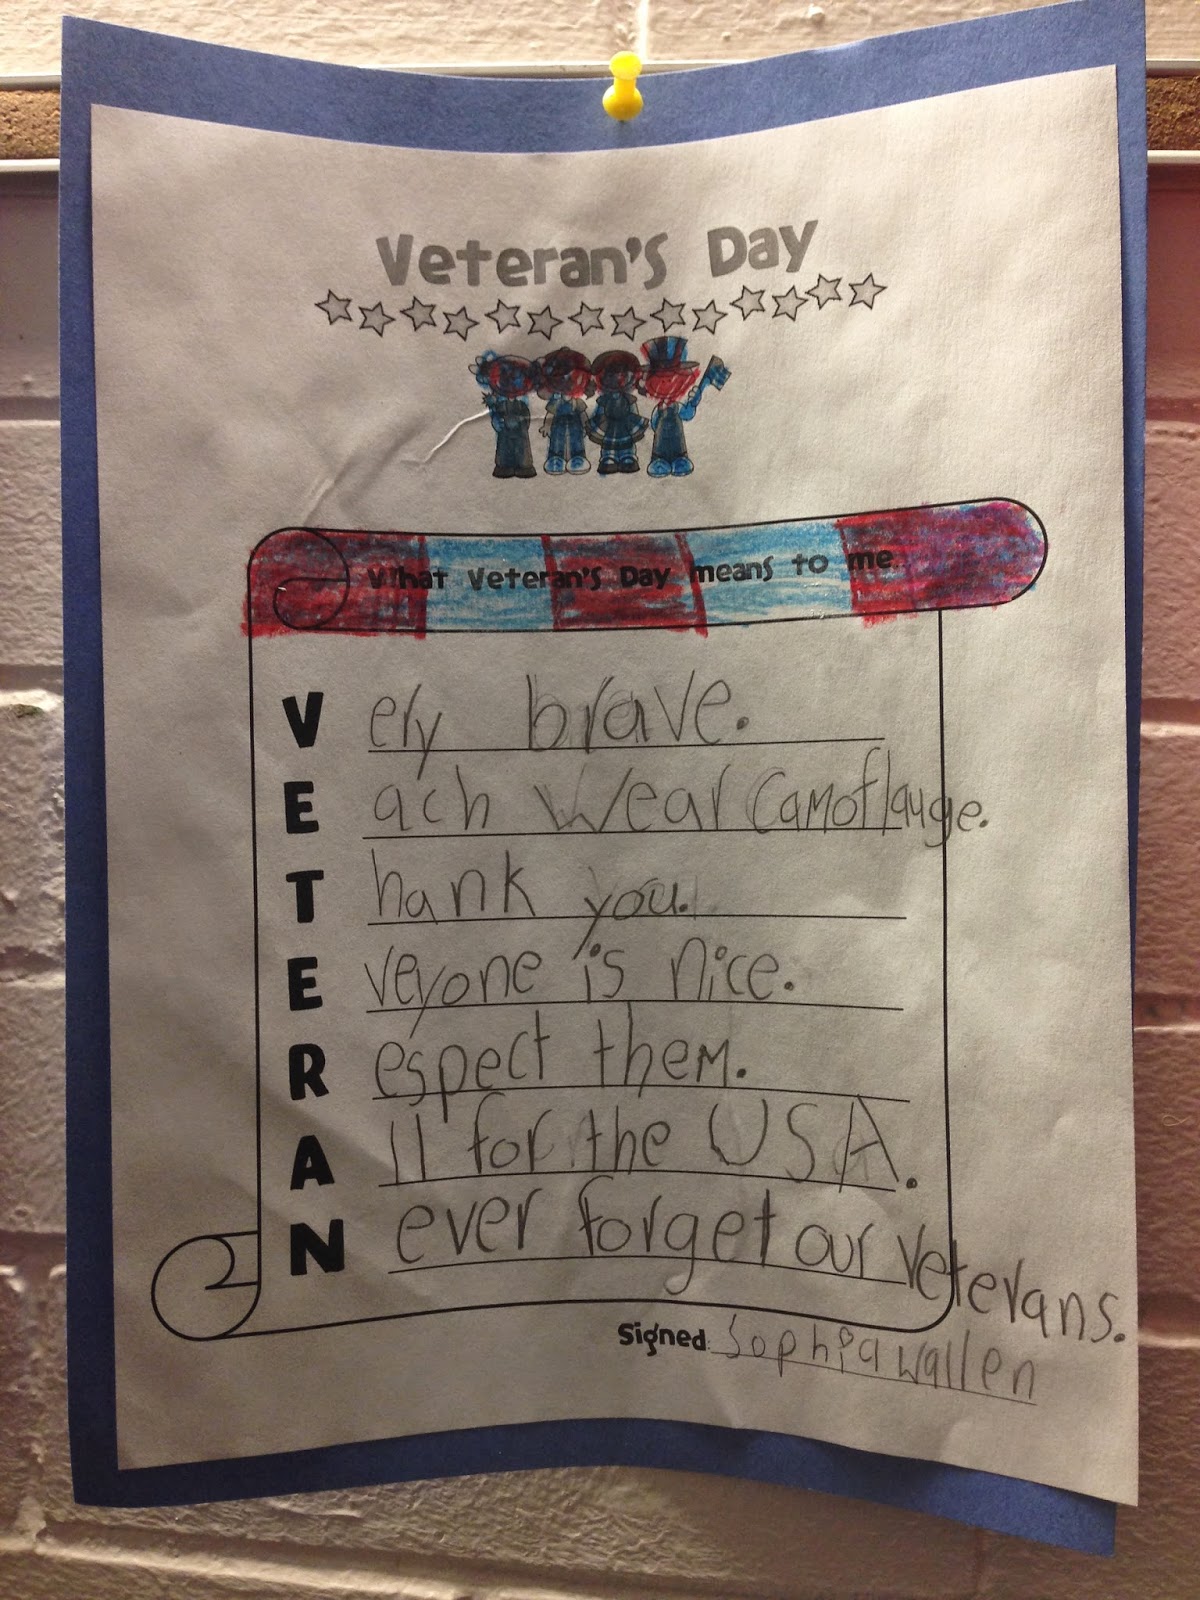 Veteran's Day
What Veteran's Day means to me...
V ery brave.
E ach wear Camoflauge.
T hank you.
E veyone is nice.
R espect them.
A ll for the USA.
N ever forget our veterans.
Signed: Sophia Wallen